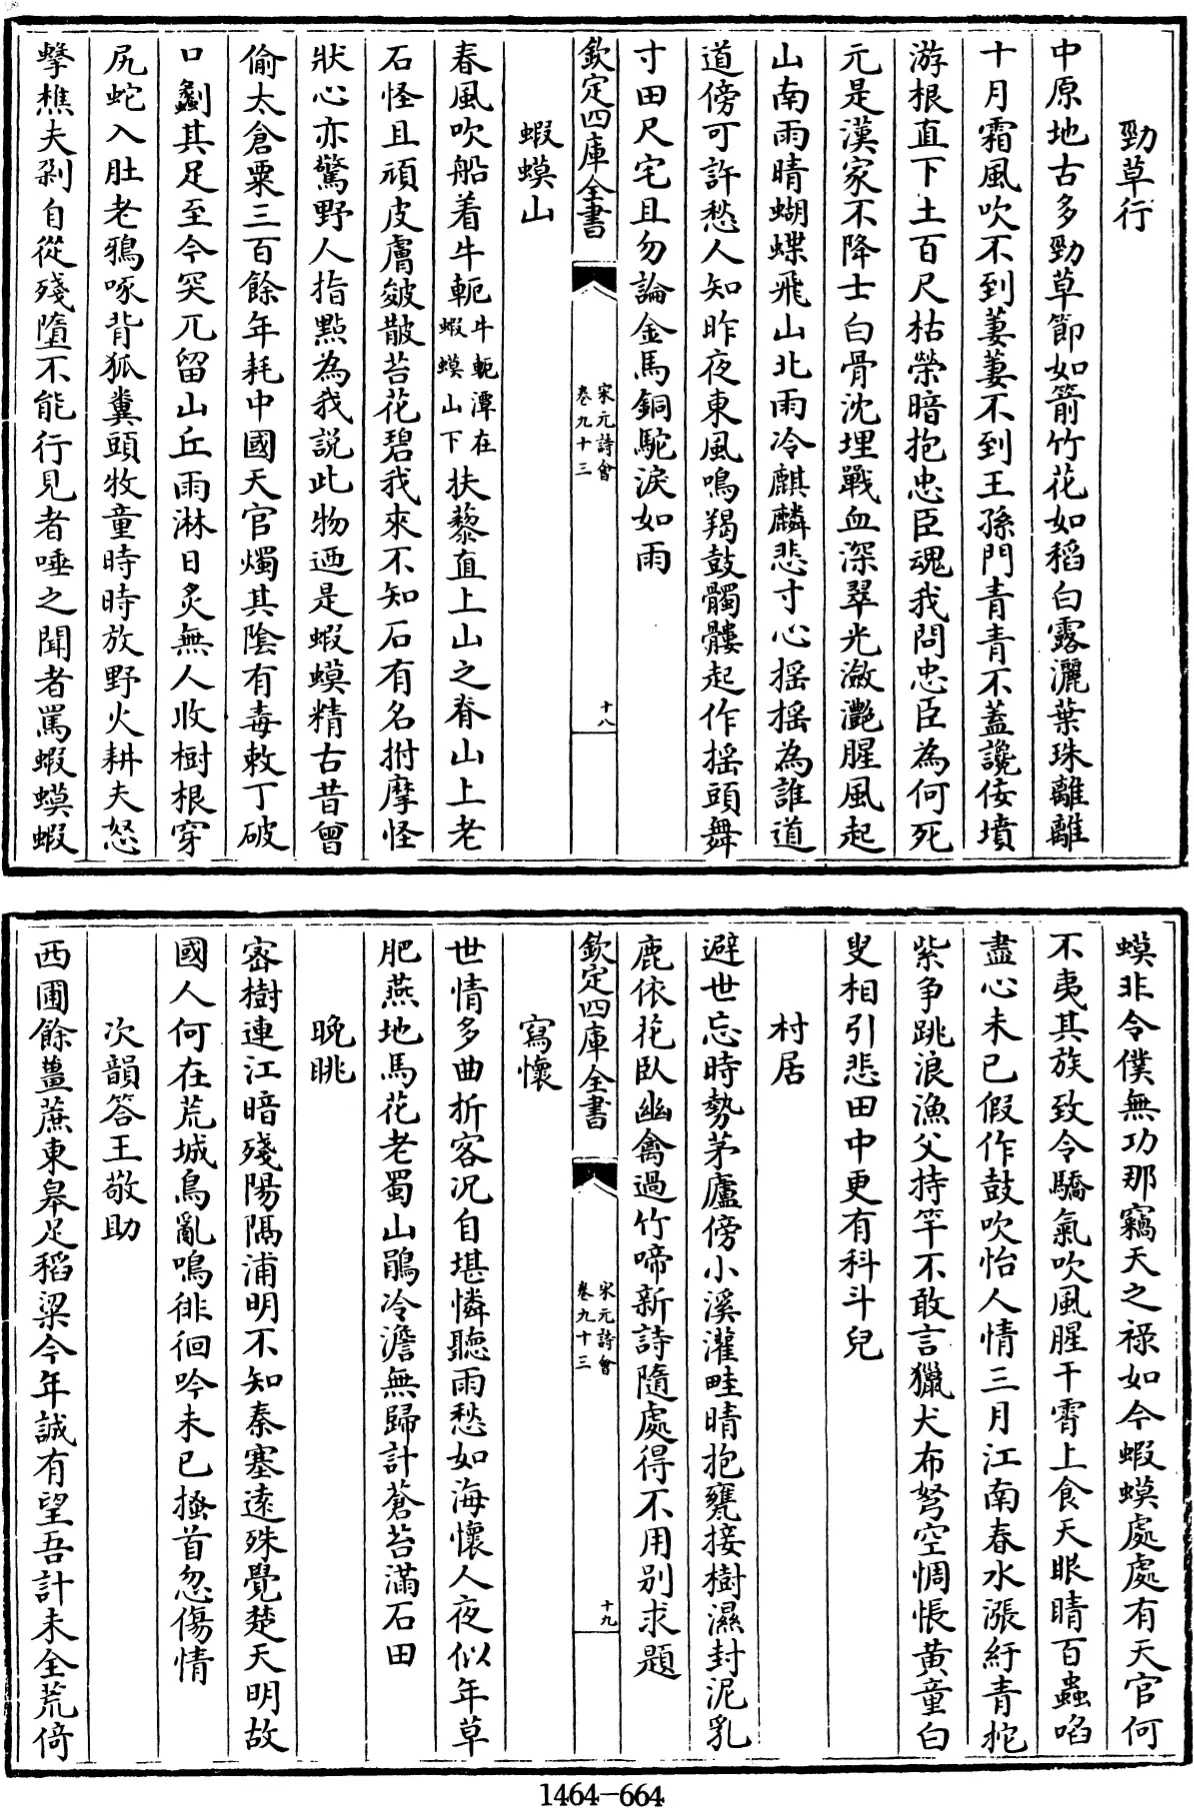 勁草行
中原地古多勁草節如箭竹花如稻白露灑葉珠離離
十月霜風吹不到萋萋不到王孫門青青不蓋讒佞墳
游根直下土百尺枯榮暗抱忠臣魂我問忠臣為何死
元是漢家不降士白骨沈埋戰血深翠光瀲灩腥風起
山南雨晴蝴蝶飛山北雨冷麒麟悲寸心搖搖為誰道
道傍可許愁人知昨夜東風鳴羯鼓髑髏起作搖頭舞
寸田尺宅且勿論金馬銅駝淚如雨
欽定四庫全書
宋元詩會
卷九十三
十八
蝦蟆山
春風吹船着牛軛牛軛潭在蝦蟆山下扶藜直上山之脊山上老
石怪且頑皮膚皴皵苔花碧我來不知石有名拊摩怪
狀心亦驚野人指點為我說此物迺是蝦蟆精古昔曾
偷太倉粟三百餘年耗中國天官燭其陰有毒敕丁破
口劙其足至今突兀留山丘雨淋日炙無人收樹根穿
尻蛇入肚老鴉啄背狐糞頭牧童時時放野火耕夫怒
擊樵夫剁自從殘墮不能行見者唾之聞者罵蝦蟆蝦
蟆非令僕無功那竊天之祿如今蝦蟆處處有天官何
不夷其族致令驕氣吹風腥干霄上食天眼睛百蟲啗
盡心未已假作鼓吹怡人情三月江南春水漲紆青拕
紫争跳浪漁父持竿不敢言獵犬布弩空惆悵黄童白
叟相引悲田中更有科斗兒
村居
避世忘時勢茅廬傍小溪灌畦晴抱甕接樹濕封泥乳
鹿依花臥幽禽過竹啼新詩隨處得不用别求題
欽定四庫全書
宋元詩會
卷九十三
十九
寫懷
世情多曲折客况自堪憐聽雨愁如海懷人夜似年草
肥燕地馬花老蜀山鵑冷澹無歸計蒼苔滿石田
晚眺
密樹連江暗殘陽隔浦明不知秦塞遠殊覺楚天明故
國人何在荒城鳥亂鳴徘徊吟未已搔首忽傷情
次韻答王敬助
西圃餘薑蔗東皋足稻粱今年誠有望吾計未全荒倚
1464-664